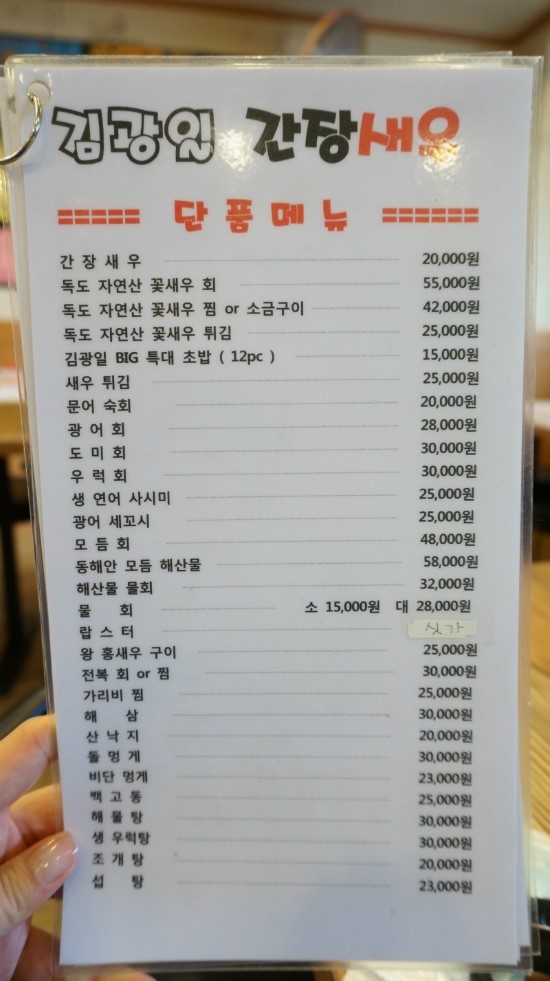 김광일 간장새우
====== 단품메뉴 ======
간 장 새 우 20,000원
독도 자연산 꽃새우 회 55,000원
독도 자연산 꽃새우 찜 or 소금구이 42,000원
독도 자연산 꽃새우 튀김 25,000원
김광일 BIG 특대 초밥 ( 12pc ) 15,000원
새우 튀김 25,000원
문어 숙회 20,000원
광 어 회 28,000원
도 미 회 30,000원
우 럭 회 30,000원
생 연어 사시미 25,000원
광어 세꼬시 25,000원
모 듬 회 48,000원
동해안 모듬 해산물 58,000원
해산물 물회 32,000원
물 회 소 15,000원 대 28,000원
랍 스 터 싯가
왕 홍새우 구이 25,000원
전복 회 or 찜 30,000원
가리비 찜 25,000원
해 삼 30,000원
산 낙 지 20,000원
돌 멍 게 30,000원
비단 멍게 23,000원
백 고 동 25,000원
해 물 탕 30,000원
생 우럭탕 30,000원
조 개 탕 20,000원
섭 탕 23,000원